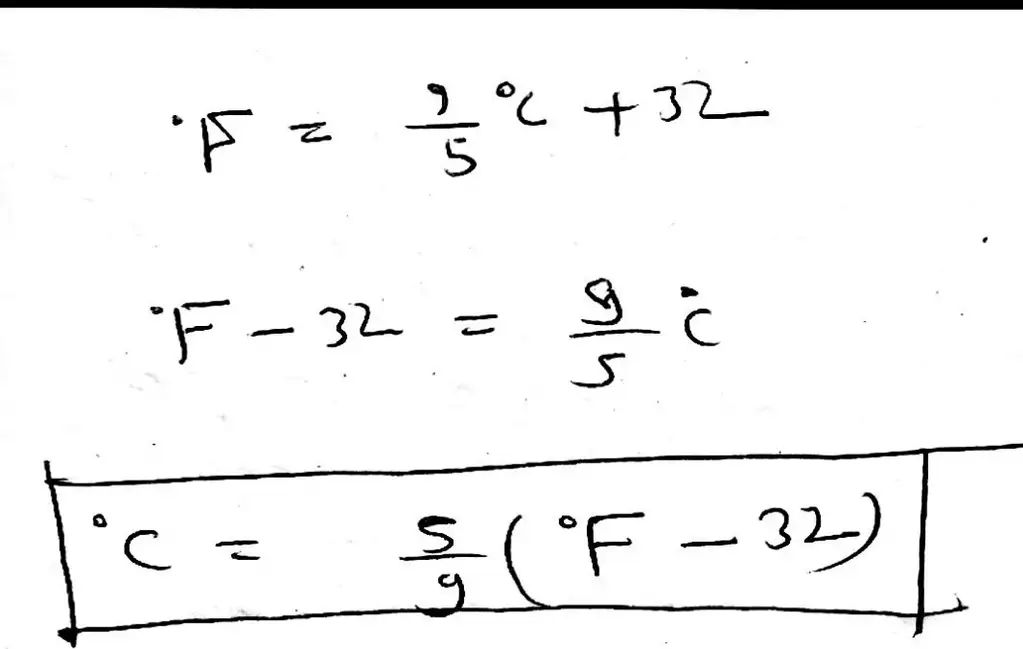 °F = 9/5 °C + 32
°F - 32 = 9/5 °C
°C = 5/9 (°F - 32)